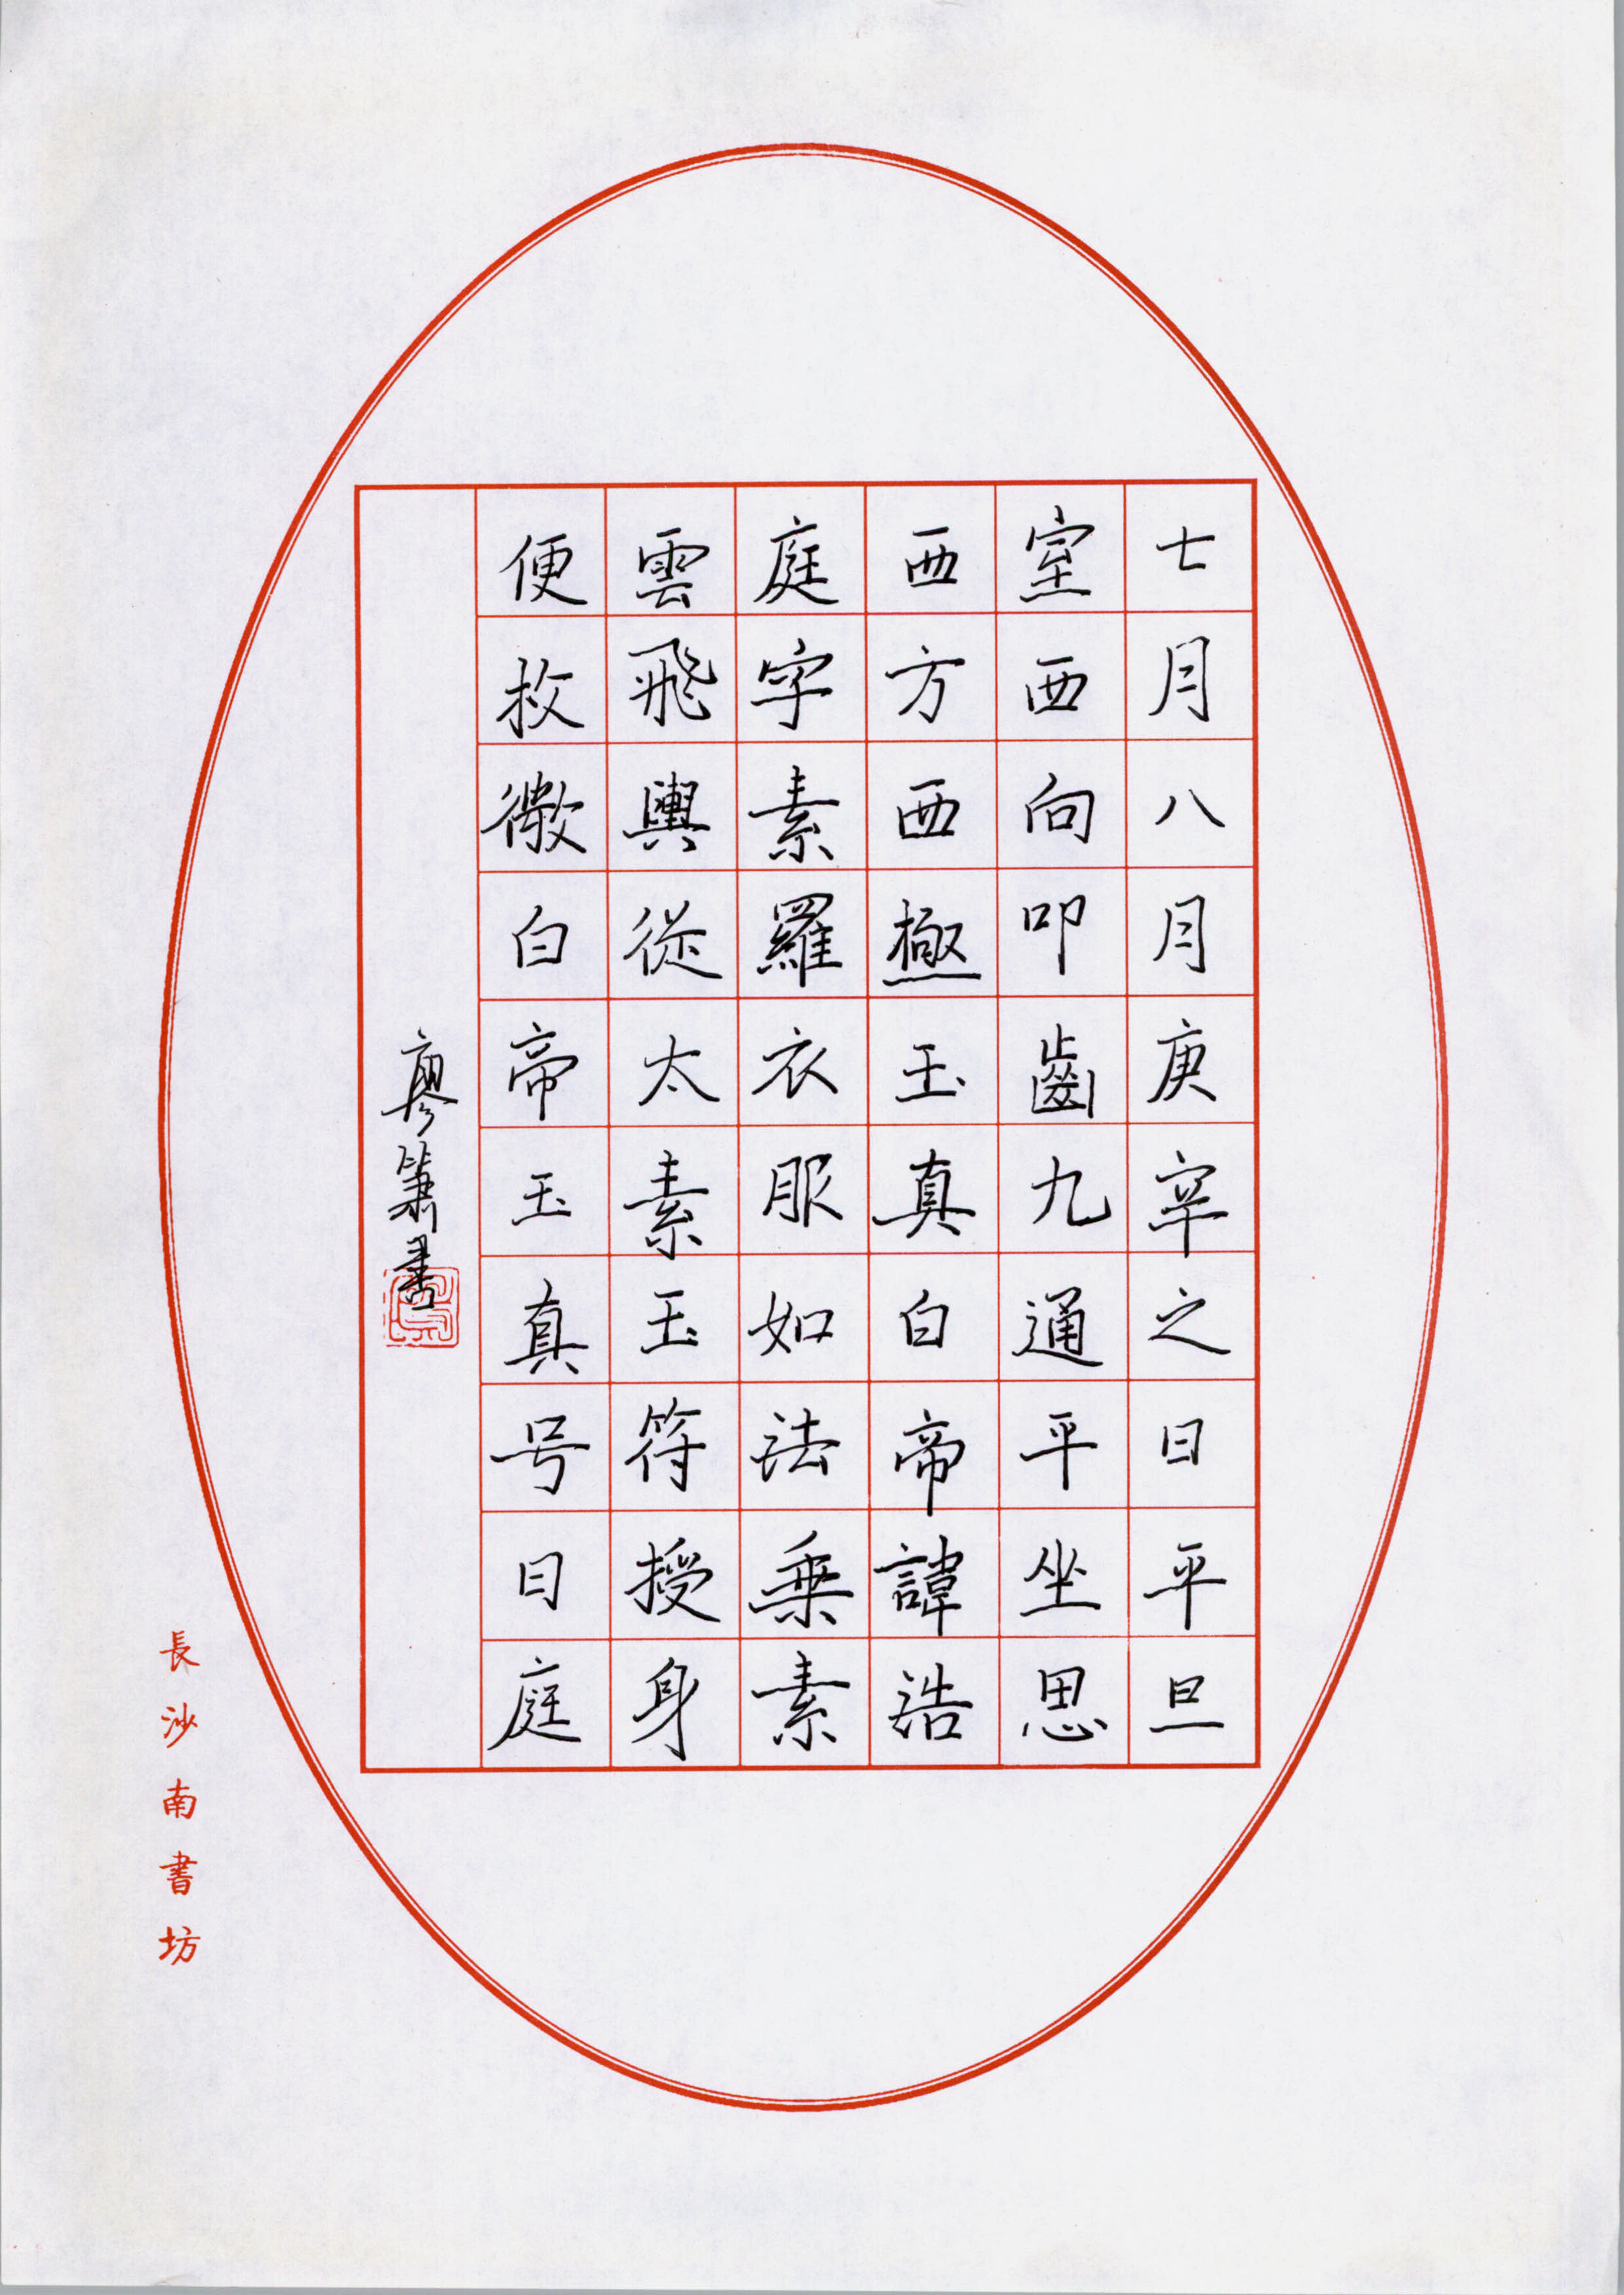 七月八月庚辛之日平旦
室西向叩齒九通平坐思
西方西極玉真白帝諱浩
庭字素羅衣服如法乗素
雲飛輿從太素玉符授身
便柭微白帝玉真号曰庭
廖簫書
長沙南書坊